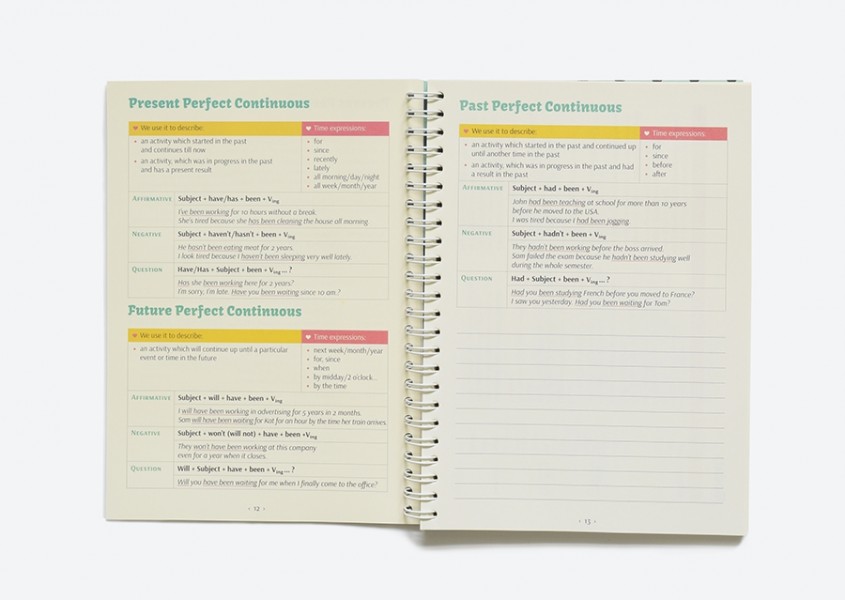 Present Perfect Continuous
We use it to describe:
Time expressions:
an activity which started in the past
and continues till now
an activity, which was in progress in the past
and has a present result
for
since
recently
lately
all morning/day/night
all week/month/year
AFFIRMATIVE Subject + have/has + been + Ving
I've been working for 10 hours without a break.
She's tired because she has been cleaning the house all morning.
NEGATIVE Subject + haven't/hasn't + been + Ving
He hasn't been eating meat for 2 years.
I look tired because I haven't been sleeping very well lately.
QUESTION Have/Has + Subject + been + Ving...?
Has she been working here for 2 years?
I'm sorry, I'm late. Have you been waiting since 10 am?
Future Perfect Continuous
We use it to describe:
Time expressions:
an activity which will continue up until a particular
event or time in the future
next week/month/year
for, since
when
by midday/2 o'clock...
by the time
AFFIRMATIVE Subject + will + have + been + Ving
I will have been working in advertising for 5 years in 2 months.
Sam will have been waiting for Kat for an hour by the time her train arrives.
NEGATIVE Subject + won't (will not) + have + been +Ving
They won't have been working at this company
even for a year when it closes.
QUESTION Will + Subject + have + been + Ving...?
Will you have been waiting for me when I finally come to the office?
12
Past Perfect Continuous
We use it to describe:
Time expressions:
an activity which started in the past and continued up
until another time in the past
an activity, which was in progress in the past and had
a result in the past
for
since
before
after
AFFIRMATIVE Subject + had + been + Ving
John had been teaching at school for more than 10 years
before he moved to the USA.
I was tired because I had been jogging.
NEGATIVE Subject + hadn't + been + Ving
They hadn't been working before the boss arrived.
Sam failed the exam because he hadn't been studying well
during the whole semester.
QUESTION Had + Subject + been + Ving...?
Had you been studying French before you moved to France?
I saw you yesterday. Had you been waiting for Tom?
13